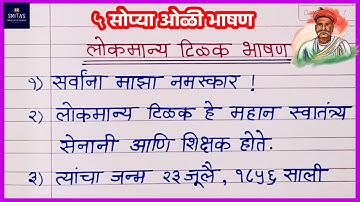 SMITAS
५ सोप्या ओळी भाषण
लोकमान्य टिळक भाषण
१) सर्वांना माझा नमस्कार !
२) लोकमान्य टिळक हे महान स्वातंत्र्य
सेनानी आणि शिक्षक होते.
३) त्यांचा जन्म २३ जूलै, १८५६ साली